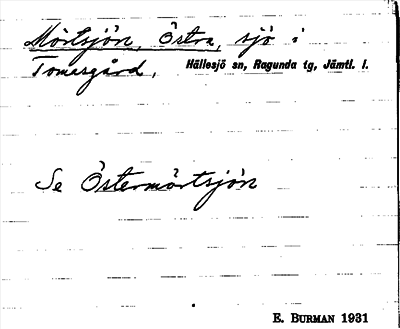 Mörtsjön, Östra, sjö i
Tomasgård, Hällesjö sn, Ragunda tg, Jämtl. l.
Se Östermörtsjön
E. BURMAN 1931